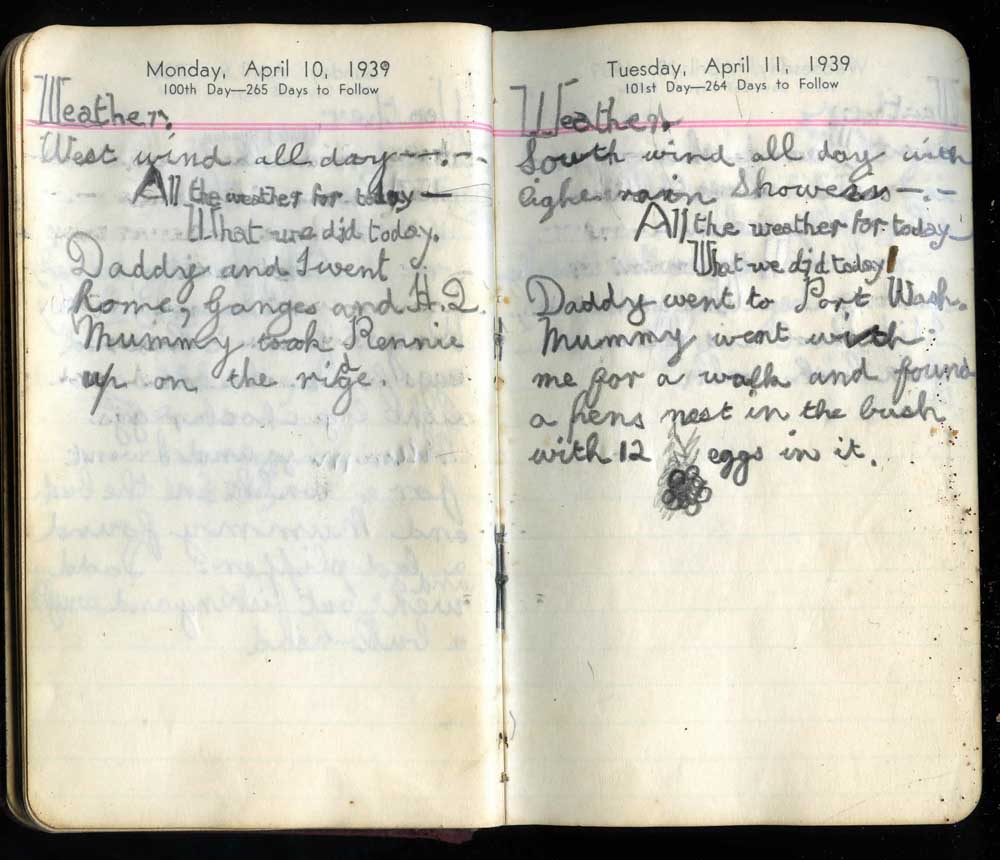 Monday, April 10, 1939
100th Day—265 Days to Follow
Weather.
West wind all day
All the weather for today
What we did today.
Daddy and I went
Rome, Ganges and H.Q.
Mummy took Rennie
up on the ridge.
Tuesday, April 11, 1939
101st Day—264 Days to Follow
Weather.
South wind all day with
light rain Showers
All the weather for today
What we did today
Daddy went to Port Wash.
Mummy went with
me for a walk and found
a hens nest in the bush
with 12 eggs in it.